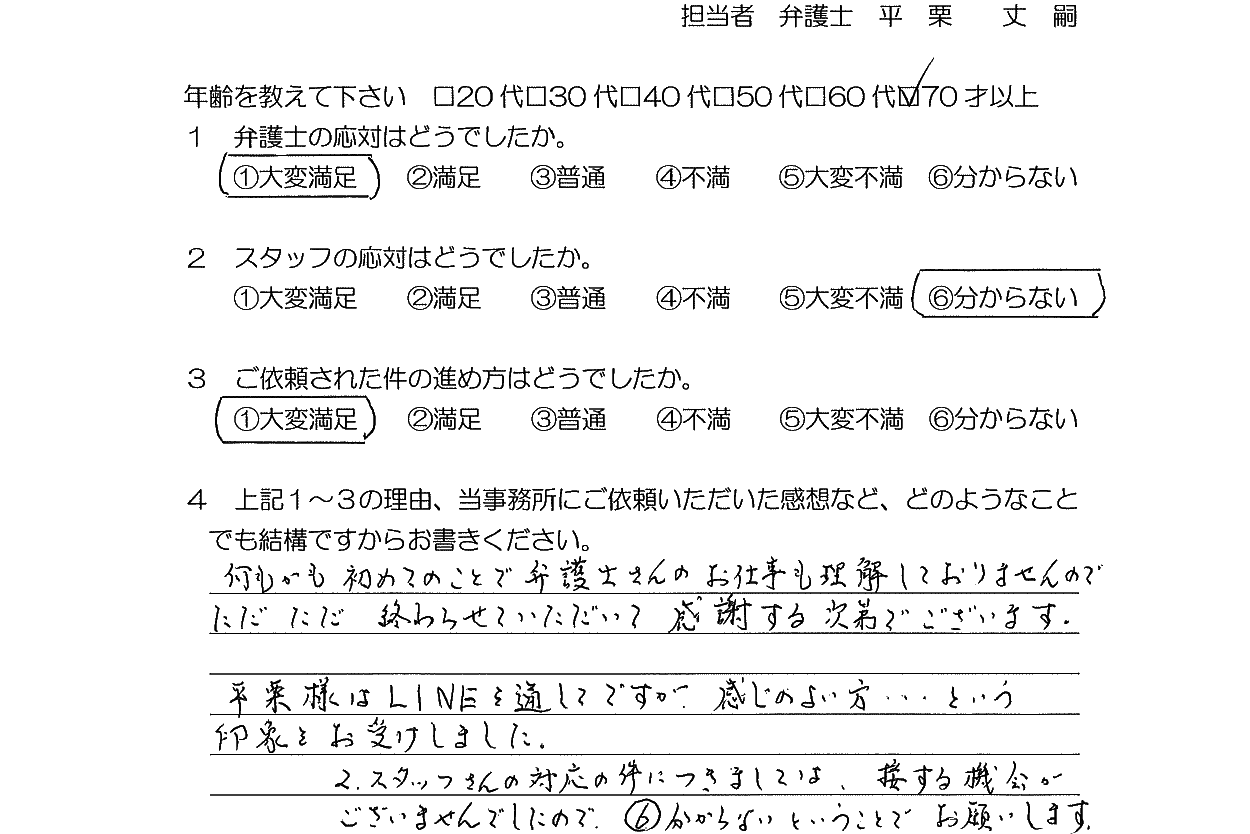 担当者　弁護士　平　栗　　丈　嗣
年齢を教えて下さい　□20代□30代□40代□50代□60代☑70才以上
１　弁護士の応対はどうでしたか。
①大変満足　②満足　③普通　④不満　⑤大変不満　⑥分からない
２　スタッフの応対はどうでしたか。
①大変満足　②満足　③普通　④不満　⑤大変不満　⑥分からない
３　ご依頼された件の進め方はどうでしたか。
①大変満足　②満足　③普通　④不満　⑤大変不満　⑥分からない
４　上記１～３の理由、当事務所にご依頼いただいた感想など、どのようなこと
でも結構ですからお書きください。
何もかも初めてのことで弁護士さんのお仕事も理解しておりませんので
ただただ 終わらせていただいて 感謝する次第でございます。
平栗様はLINEを通してですが、感じのよい方・・・という
印象をお受けしました。
2.スタッフさんの対応の件につきましては、接する機会が
ございませんでしたので、⑥分からないということでお願いします。